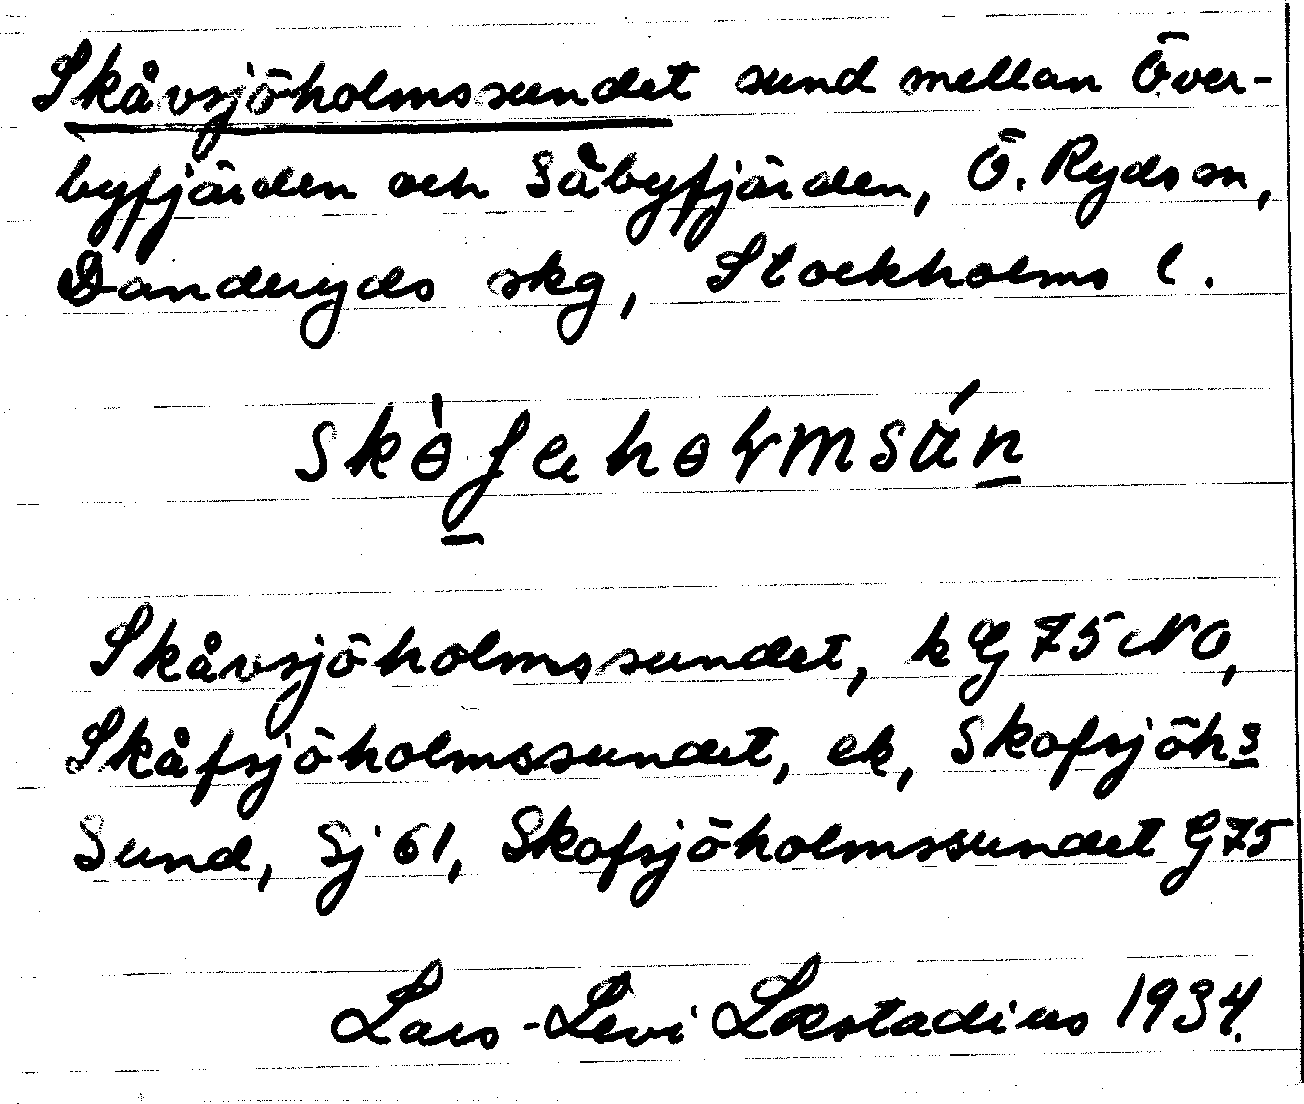 Skåvsjöholmssundet sund mellan Över-
byfjärden och Säbyfjärden, Ö. Ryds sn,
Danderyds skg, Stockholms l.
Skåvsjöholmssundet, kG 75 NO,
Skåfsjöholmssundet, ek, Skofsjöhs
Sund, Sj 61, Skofsjöholmssundet G75
Lars-Levi Læstadius 1934.